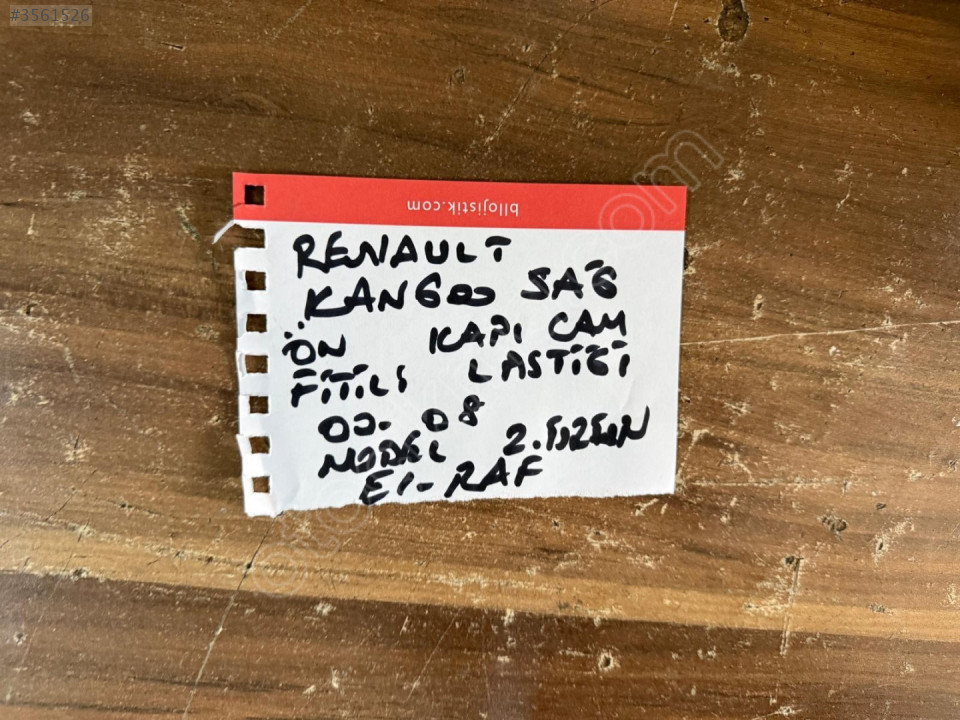 #3561526
bllojistik.com
RENAULT
KANGOO SAĞ
ÖN KAPI CAM
FİTİLİ LASTİĞİ
00. 08
MODEL
E1-RAF